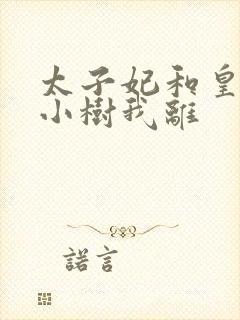 太子妃和皇
小樹我離
諾言